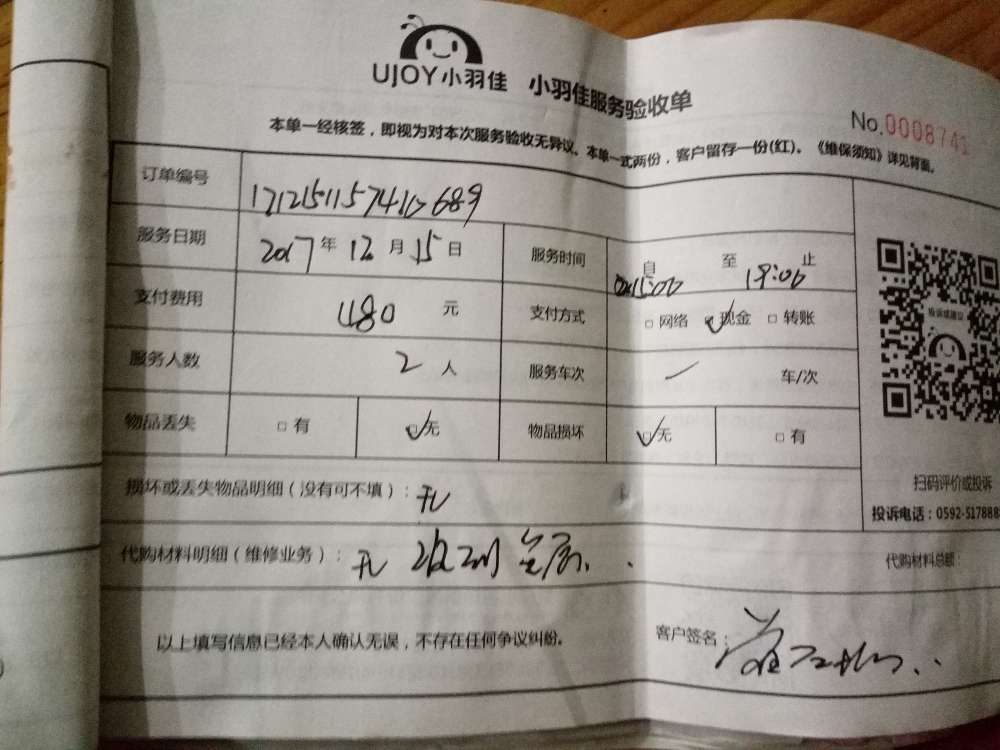 UJOY小羽佳 小羽佳服务验收单
No.0008741
本单一经核签，即视为对本次服务验收无异议。本单一式两份，客户留存一份(红)。《维保须知》详见背面。
订单编号
服务日期 2017年12月15日 服务时间 自15:00至19:00止
支付费用 480元 支付方式 □网络 ☑现金 □转账
服务人数 2人 服务车次 / 车/次
物品丢失 □有 ☑无 物品损坏 ☑无 □有
投诉或建议
扫码评价或投诉
投诉电话：0592-517888
损坏或丢失物品明细（没有可不填）：无
代购材料明细（维修业务）：无 玻璃
代购材料总额：
以上填写信息已经本人确认无误，不存在任何争议纠纷。
客户签名：